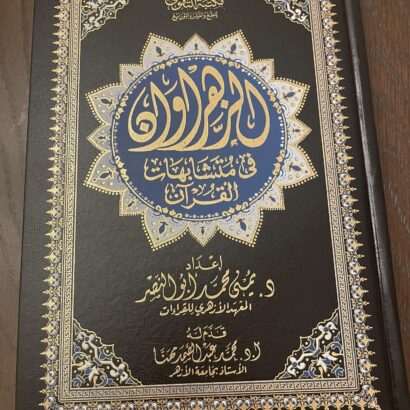 مكتبة
للطبع والنشر والتوزيع
الزهراوان
في متشابهات
القرآن
إعداد
د. محمد أبو النصر
المعهد الأزهري للقراءات
قدم له
أ.د. محمد عبد مهنا
الأستاذ بجامعة الأزهر